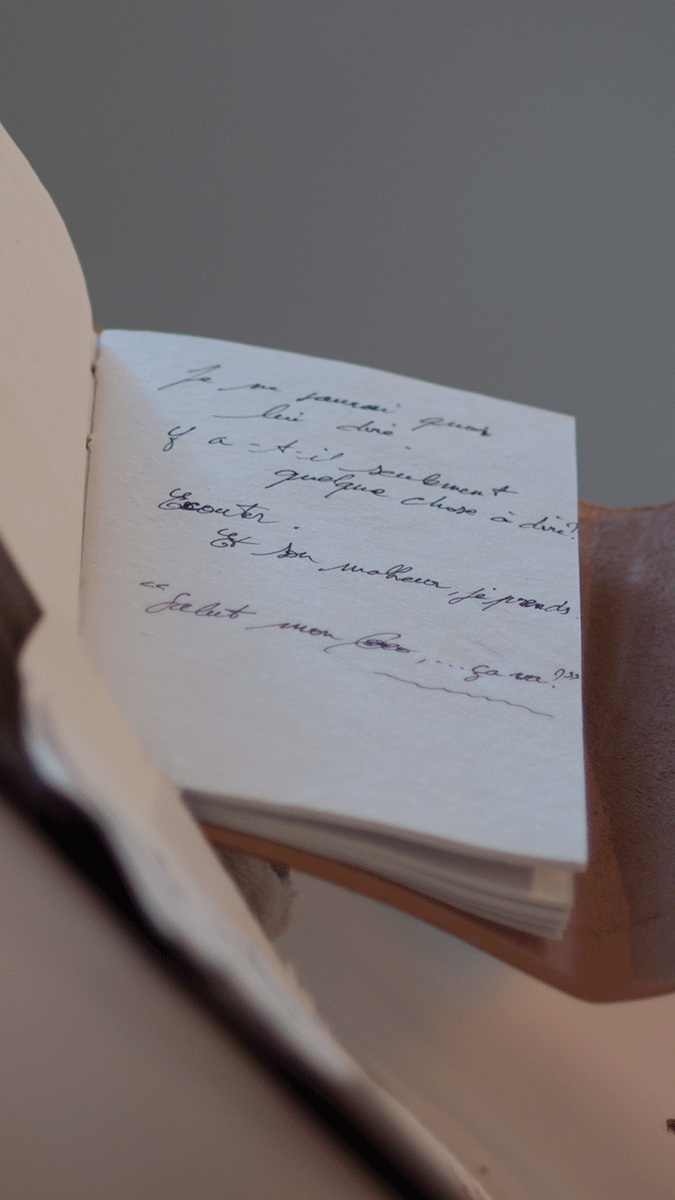 Je ne saurai quoi
lui dire.
Y a-t-il seulement
quelque chose à dire?
Ecouter.
Et son malheur, je prends.
"Salut mon Coco,... ça va?"